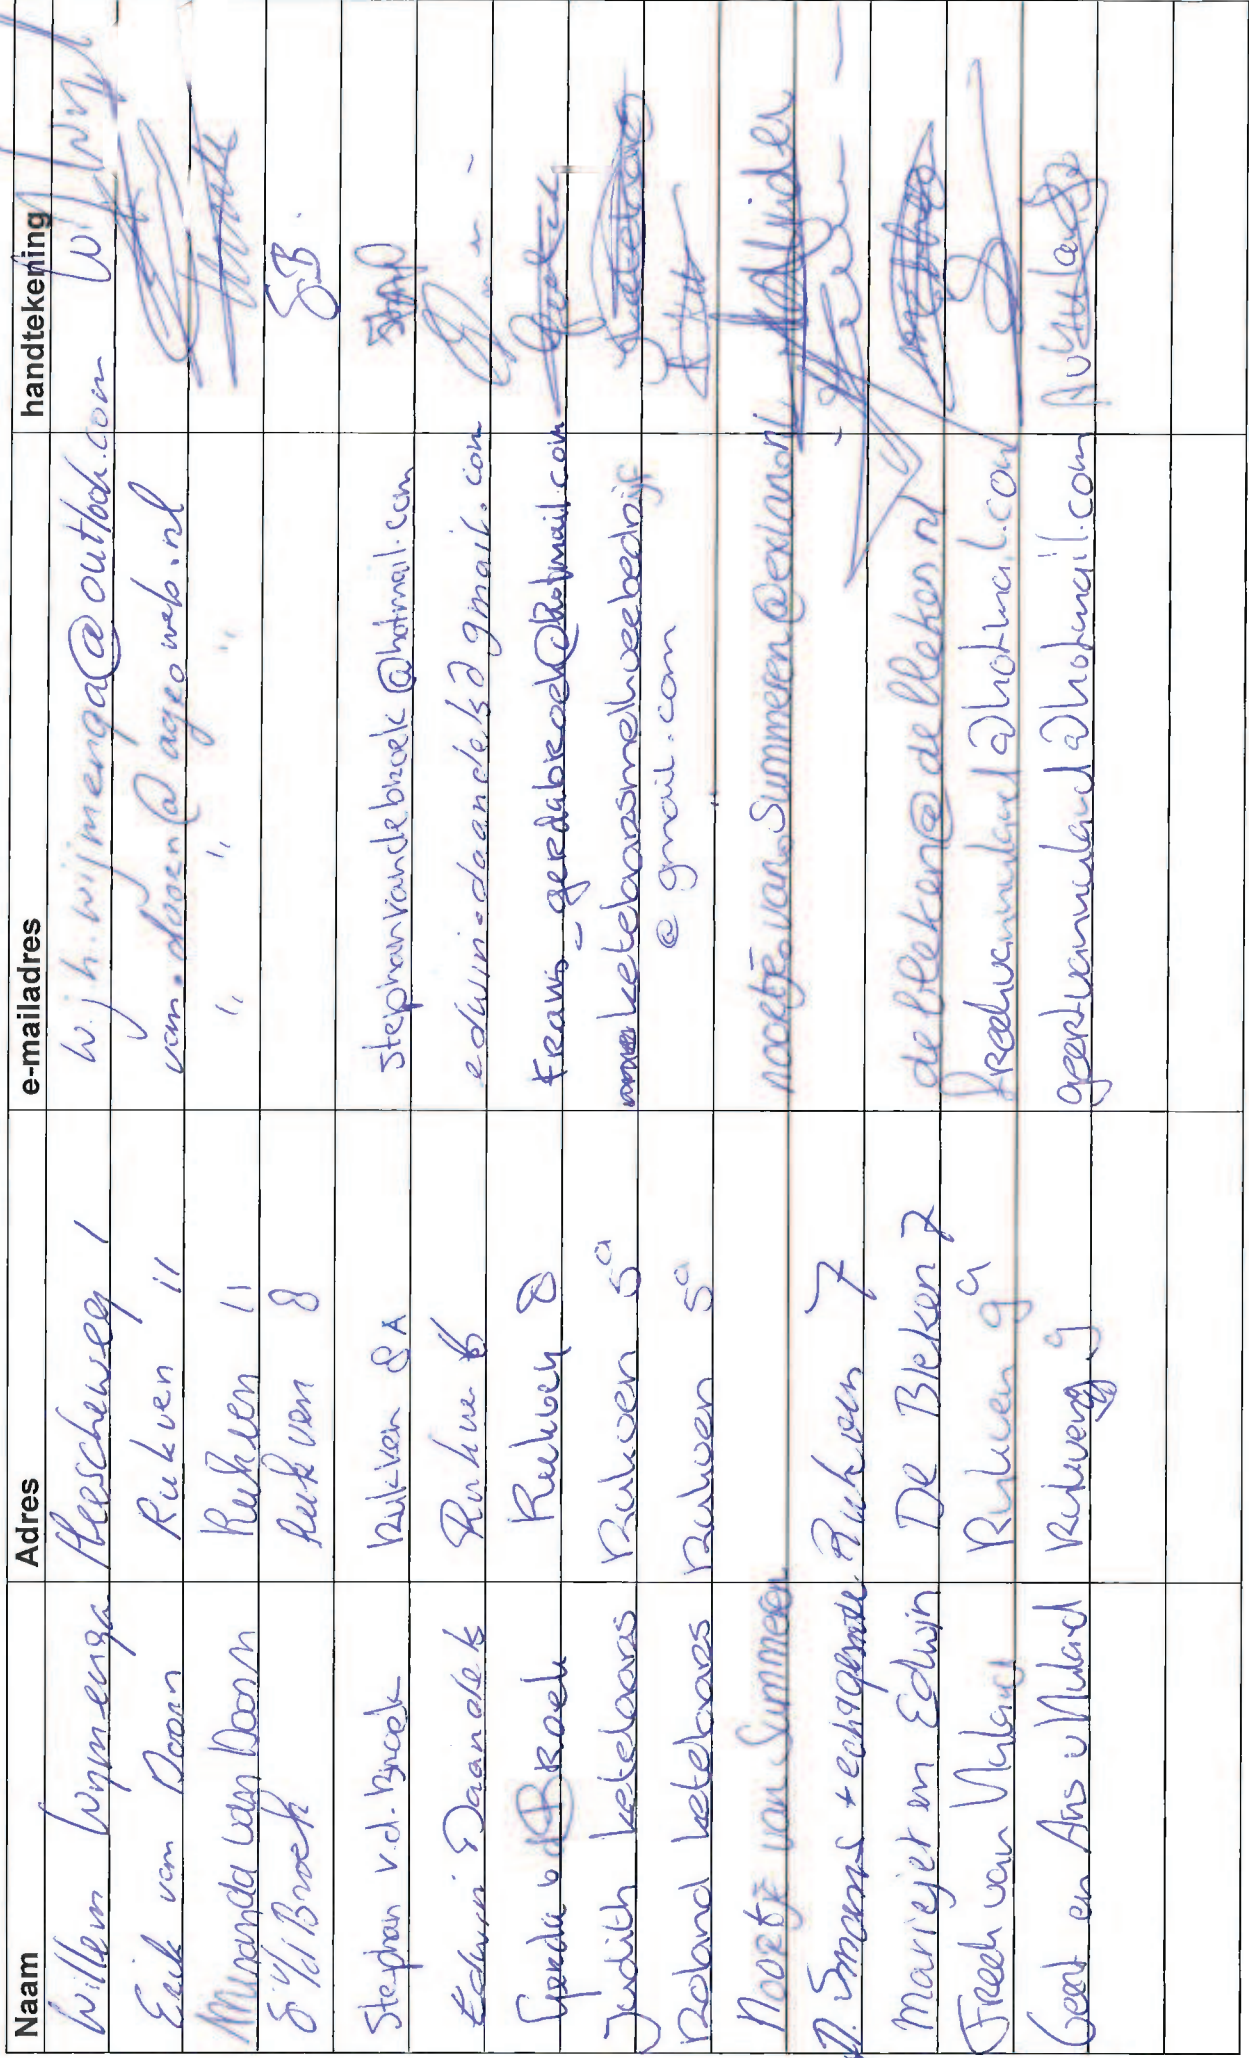 Naam Adres e-mailadres handtekening
Willem Wijmenga Heescheweg 1 w.j.h.wijmenga@outlook.com
Erik van Doorn Rukven 11 van.doorn@ageoweb.nl
Miranda van Doorn Rukven 11 " " "
S v/d Broek Rukven 8 S.B.
Stephan v.d. Broek Rukven 8A stephanvandebroek@hotmail.com
Edwin Daandels Rukven 6 edwin.daandels@gmail.com
Gerda v d Broek Rukven 8 frans_gerdabroek@hotmail.com
Judith Ketelaars Rukven 5a ketelaarsmelkveebedrijf
@gmail.com
Roland Ketelaars Rukven 5a
Noortje van Summeren noortje.van.Summeren@exlan.nl
Rukven 7
Mariejet en Edwin De Bleken 7 debleken@debleken.nl
Freek van Nuland Rukven 9a freekvannuland@hotmail.com
Geert en Ans v Nuland Rukven 9 geertvannuland@hotmail.com